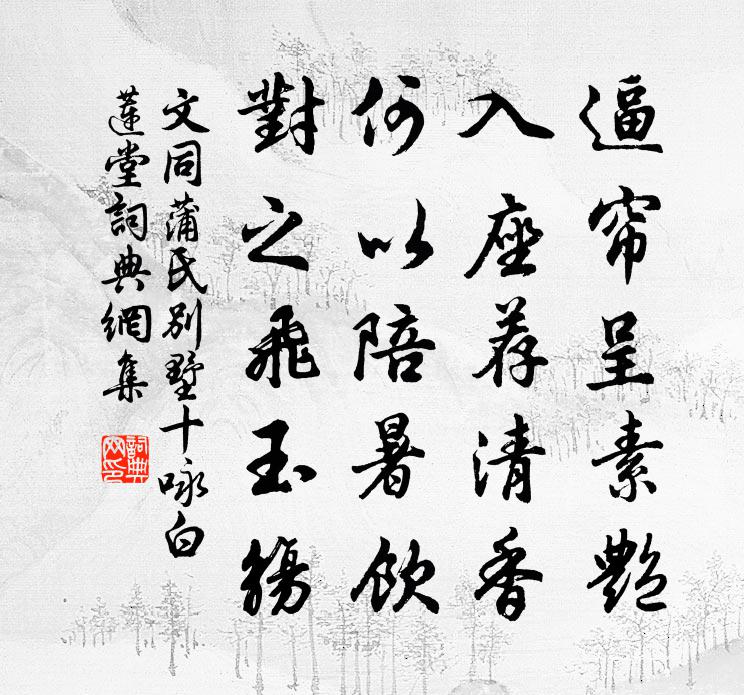 逼帘呈素艷
入座荐清香
何以陪暑飲
對之飛玉觴
文同蒲氏別墅十咏白
蓮堂詞典網集
詞典
网印